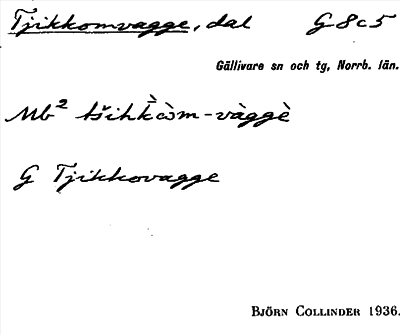 Tjikkomvagge, dal G 8 c 5
Gällivare sn och tg, Norrb. län.
Mb² tšihk̀ὰm-vàggè
G Tjikkovagge
BJÖRN COLLINDER 1936.